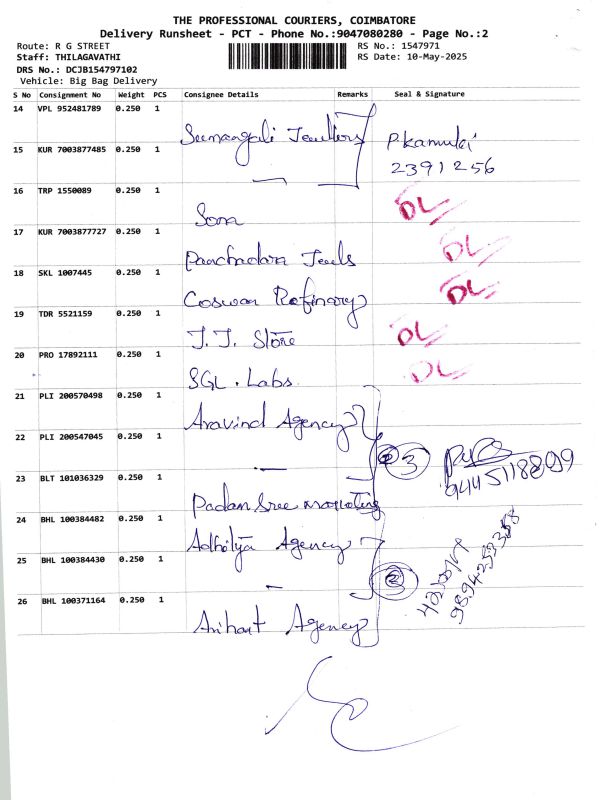 THE PROFESSIONAL COURIERS, COIMBATORE
Delivery Runsheet - PCT - Phone No.:9047080280 - Page No.:2
Route: R G STREET
Staff: THILAGAVATHI
DRS No.: DCJB154797102
Vehicle: Big Bag Delivery
RS No.: 1547971
RS Date: 10-May-2025
S No Consignment No Weight PCS Consignee Details Remarks Seal & Signature
14 VPL 952481789 0.250 1 Sumangali Jewellers
15 KUR 7003877485 0.250 1 — P.Kamuki
2391256
16 TRP 1550089 0.250 1 Sona DL
17 KUR 7003877727 0.250 1 Panchadara Jewels DL
18 SKL 1007445 0.250 1 Coswan Refinary DL
19 TDR 5521159 0.250 1 J.J. Store DL
20 PRO 17892111 0.250 1 SGL. Labs DL
21 PLI 200570498 0.250 1 Aravind Agency
22 PLI 200547045 0.250 1 — 3
9445118809
23 BLT 101036329 0.250 1 Padam Sree marketing
24 BHL 100384482 0.250 1 Agency
25 BHL 100384430 0.250 1 — 3
26 BHL 100371164 0.250 1 Arihant Agency